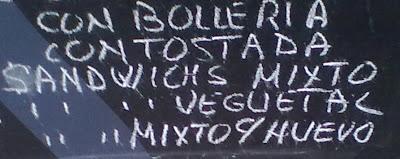 CON BOLLERIA
CON TOSTADA
SANDWICHS MIXTO
" " VEGUETAL
" " MIXTO Y HUEVO